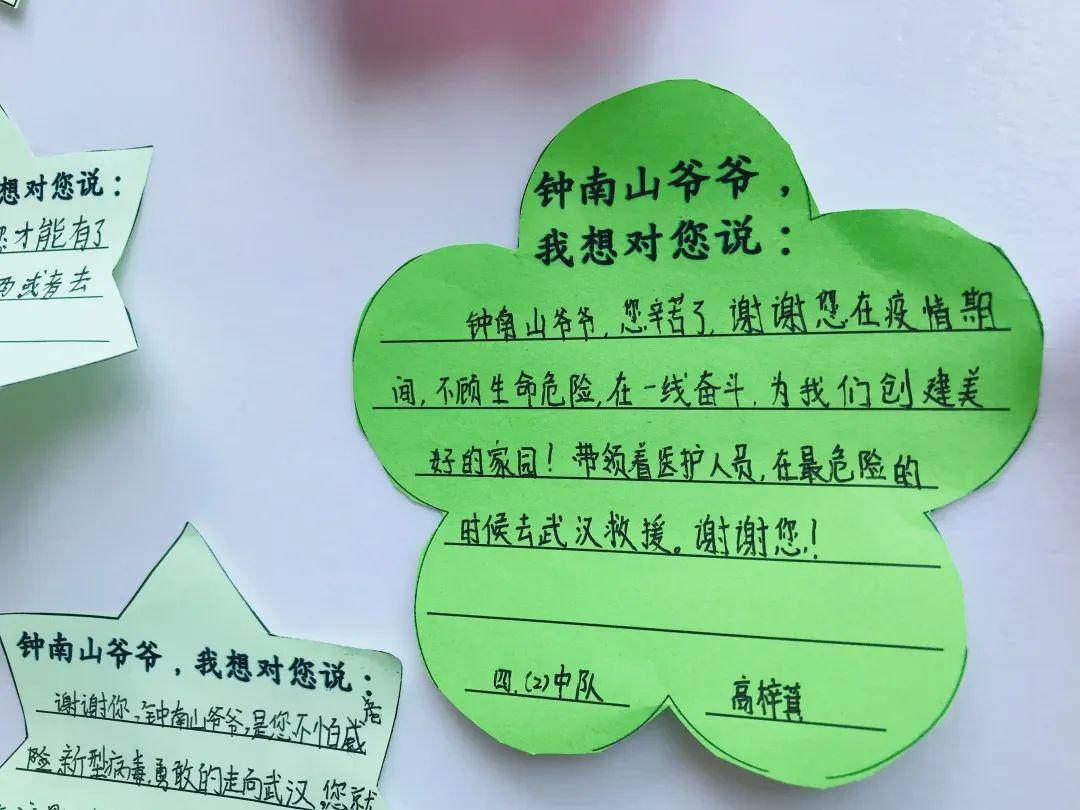 想对您说：
您才能有了
西或考去
钟南山爷爷，
我想对您说：
钟南山爷爷，您辛苦了，谢谢您在疫情期
间，不顾生命危险，在一线奋斗，为我们创建美
好的家园！带领着医护人员，在最危险的
时候去武汉救援。谢谢您！
四、(2)中队 高梓萁
钟南山爷爷，我想对您说：
谢谢你，钟南山爷爷，是您不怕威
险新型病毒，勇敢的走向武汉，您就